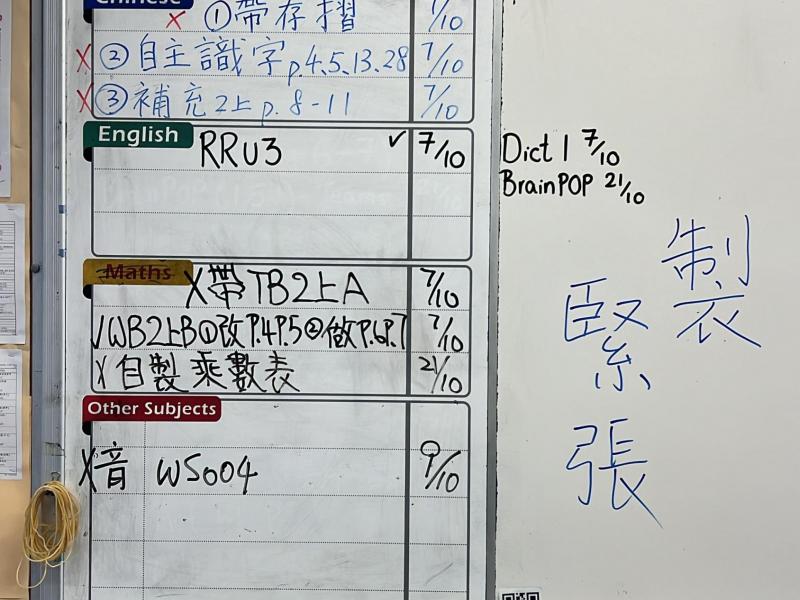 Chinese
x ①帶存摺 7/10
x ②自主識字 p.4.5.13.28 7/10
x ③補充2上 p.8-11 7/10
English
RRU3 ✓ 7/10
Dict 1 7/10
BrainPOP 21/10
Maths
x 帶TB2上A 7/10
✓ WB2上B①改P.4P.5②做P.6P.7 7/10
x 自製乘數表 21/10
Other Subjects
x 音 WS004 9/10
製
緊
張